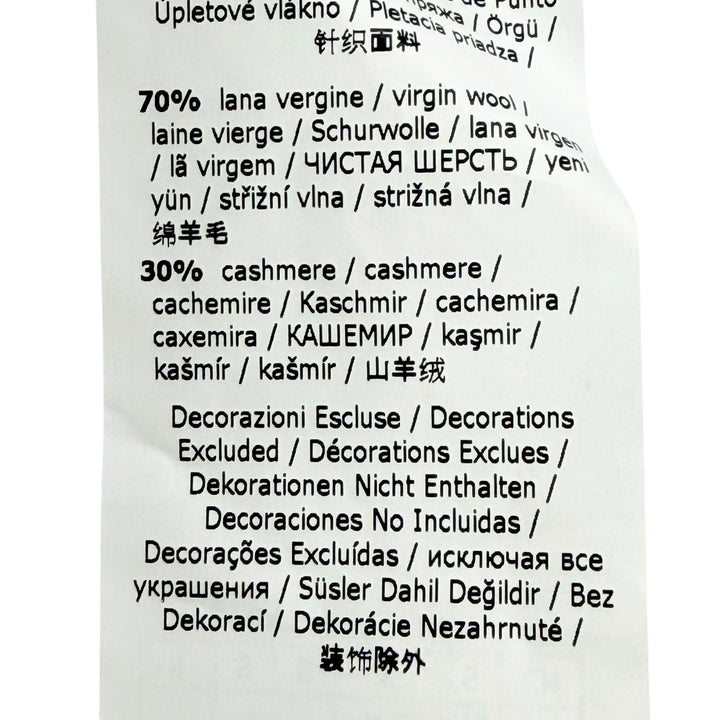 de Punto
Úpletové vlákno / Pletacia priadza /
пряжа / Örgü /
针织面料
70% lana vergine / virgin wool /
laine vierge / Schurwolle / lana virgen
/ lã virgem / ЧИСТАЯ ШЕРСТЬ / yeni
yün / střižní vlna / strižná vlna /
绵羊毛
30% cashmere / cashmere /
cachemire / Kaschmir / cachemira /
caxemira / КАШЕМИР / kaşmir /
kašmír / kašmír / 山羊绒
Decorazioni Escluse / Decorations
Excluded / Décorations Exclues /
Dekorationen Nicht Enthalten /
Decoraciones No Incluidas /
Decorações Excluídas / исключая все
украшения / Süsler Dahil Değildir / Bez
Dekorací / Dekorácie Nezahrnuté /
装饰除外